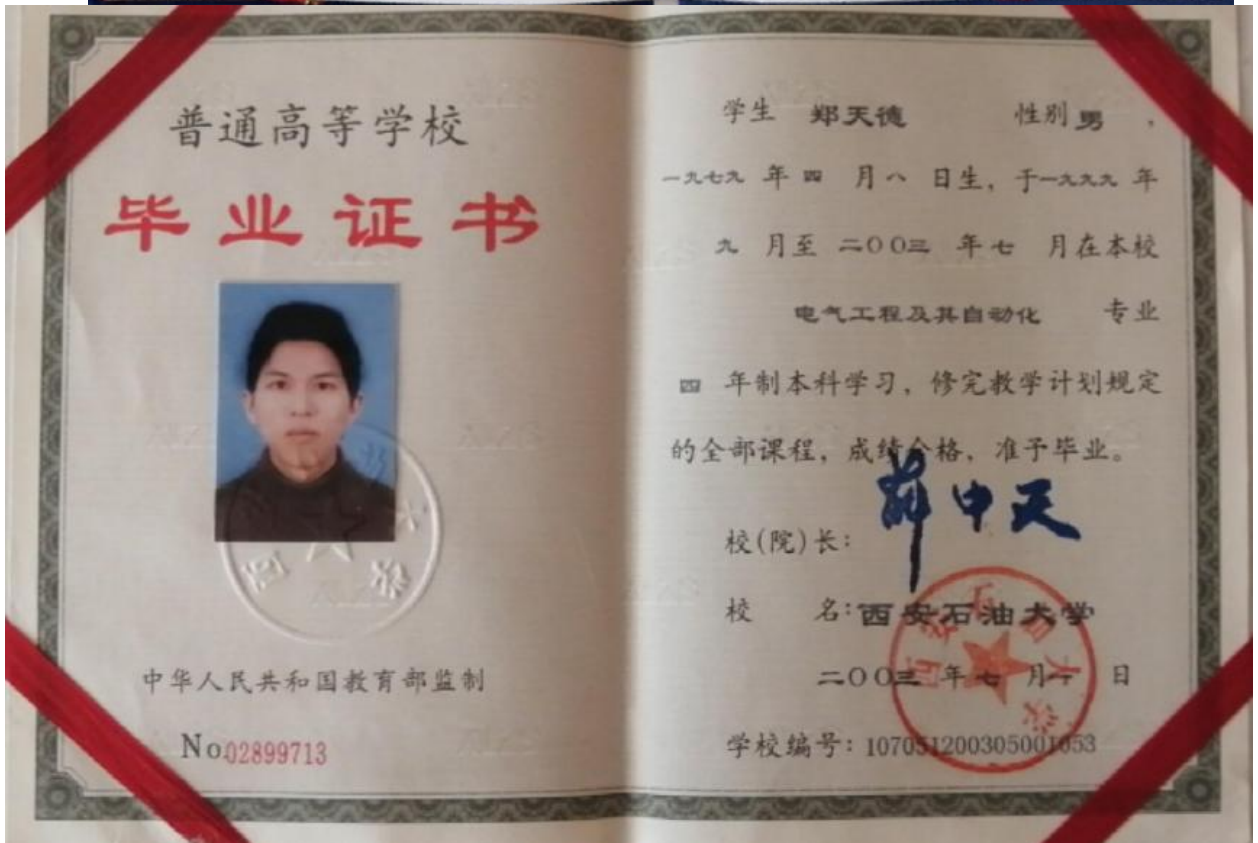 普通高等学校
毕业证书
中华人民共和国教育部监制
No.02899713
学生 郑天德 性别 男,
一九七九 年 四 月 八 日生, 于一九九九 年
九 月至 二00三 年 七 月在本校
电气工程及其自动化 专业
四 年制本科学习, 修完教学计划规定
的全部课程, 成绩合格, 准予毕业。
校(院)长: 薛中天
校 名: 西安石油大学
二00三 年 七 月 一 日
学校编号: 107051200305001053